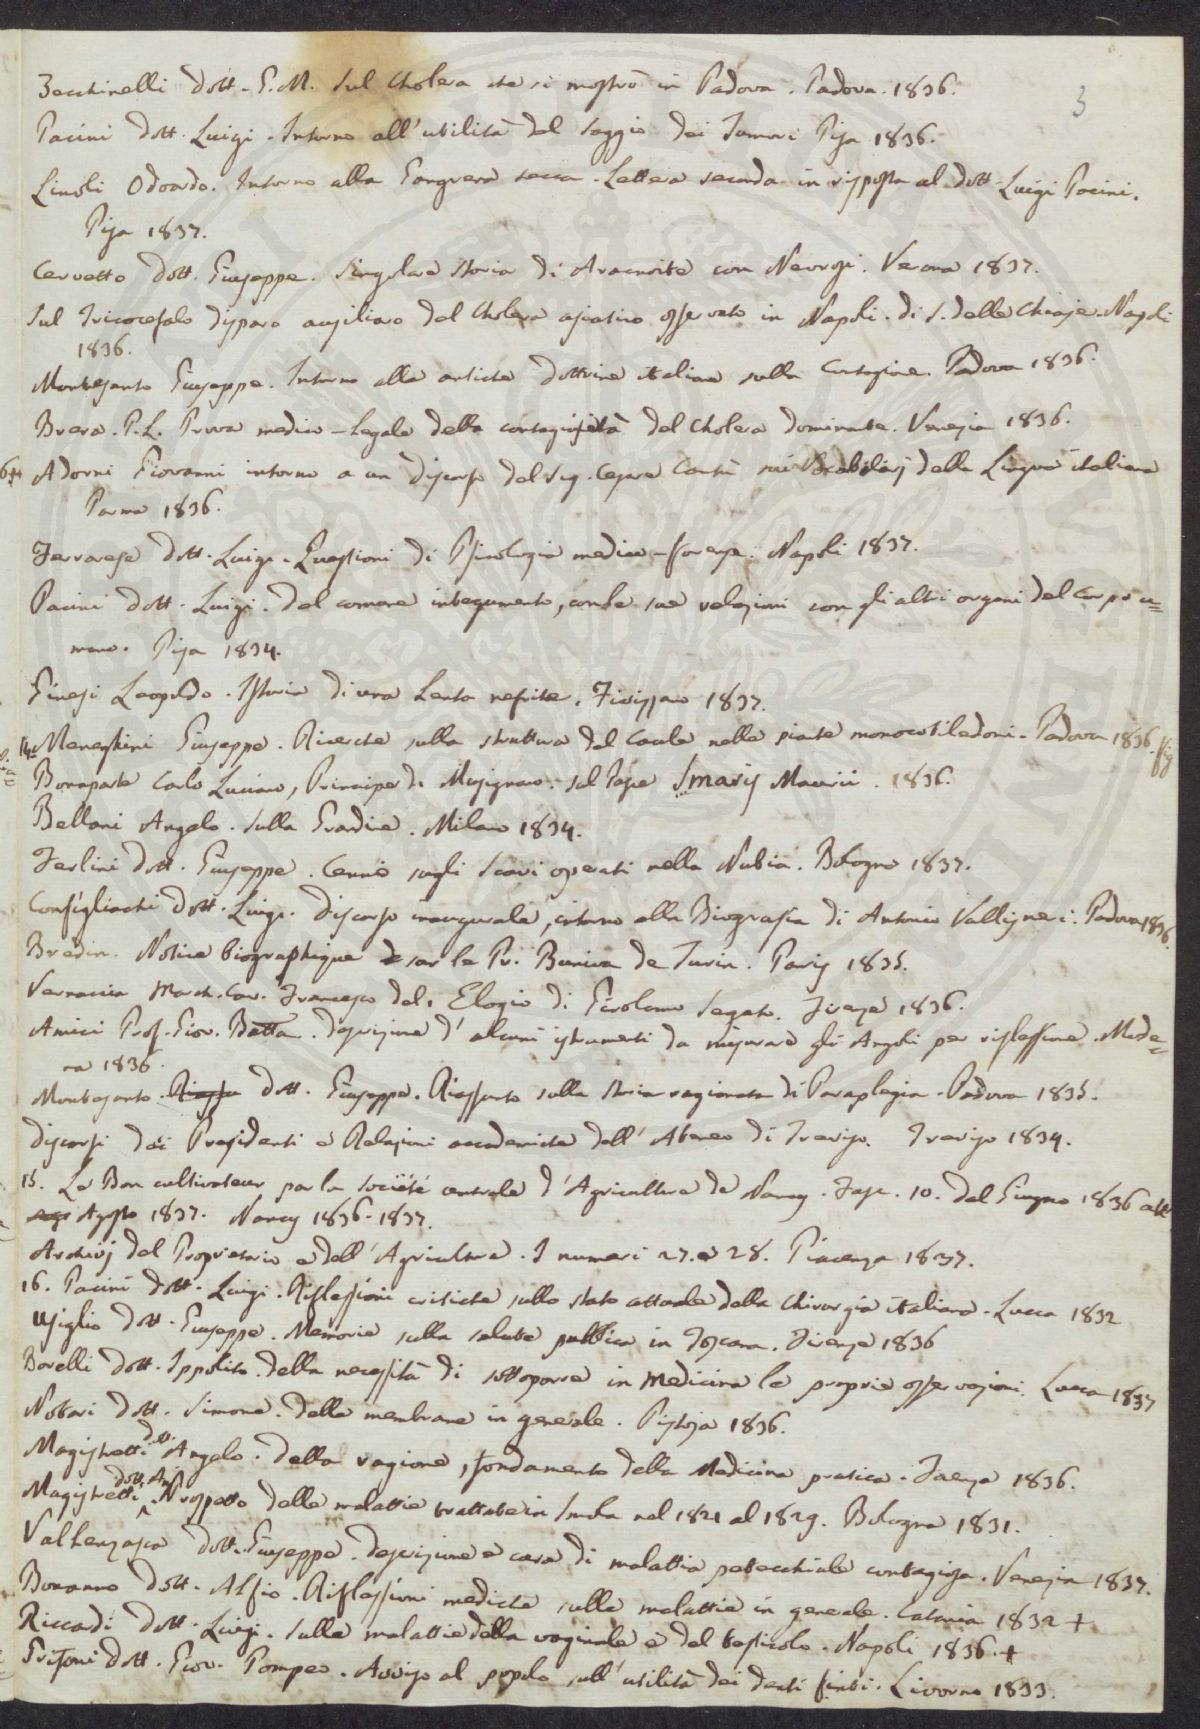 3
Zecchinelli dott. G. M. Sul Cholera che si mostrò in Padova. Padova. 1836.
Pacini dott. Luigi. Intorno all'utilità del saggio dei Tumori Pisa 1836.
Linoli Odoardo. Intorno alla Gangrena secca. Lettera seconda in risposta al dott. Luigi Pacini.
Pisa 1837.
Cervetto dott. Giuseppe. Singolare storia di Aracnoite con Nevrosi. Verona 1837.
Sul Tricocefalo disparo ausiliare del Cholera asiatico osservato in Napoli. di S. delle Chiaje. Napoli
1836.
Montesanto Giuseppe. Intorno alle antiche dottrine italiane sulla Contagione. Padova 1836.
Brera. V. L. Prova medico-legale della contagiosità del Cholera dominante. Venezia 1836.
Adorni Giovanni intorno a un discorso del Sig. Cesare Cantù sui Vocabolarj della Lingua italiana
Parma 1836.
Ferrarese dott. Luigi. Questioni di Psicologia medico-forense. Napoli 1837.
Pacini dott. Luigi. del comune integumento, con le sue relazioni con gli altri organi del corpo u=
mano. Pisa 1834.
Ginesi Leopoldo. Istoria di una lenta nefrite. Fivizzano 1837.
14. Meneghini Giuseppe. Ricerche sulla struttura del Caule nelle piante monocotiledoni. Padova 1836. fig
Bonaparte Carlo Luciano, Principe di Musignano. sul Pesce Smaris Maurii. 1836.
Bellani Angelo. Sulla Grandine. Milano 1834.
Ferlini dott. Giuseppe. Cenno sugli Scavi operati nella Nubia. Bologna 1837.
Configliachi dott. Luigi. discorso inaugurale, intorno alla Biografia di Antonio Vallisneri. Padova 1836.
Bredin. Notice biographique sur le Pr. Buniva de Turin. Paris 1835.
Vernaccia March. Cav. Francesco del. Elogio di Girolamo Segato. Firenze 1836.
Amici Prof. Giov. Batta. descrizione d'alcuni istrumenti da misurare gli Angoli per riflessione. Mode=
na 1836.
Montesanto dott. Giuseppe. Riassunto sulla storia ragionata di Paraplegia. Padova 1835.
discorsi dei Presidenti e Relazioni accademiche dell'Ateneo di Treviso. Treviso 1834.
15. Le Bon cultivateur par la société centrale d'Agriculture de Nancy. Fasc. 10. dal Giugno 1836 all'
Agosto 1837. Nancy 1836-1837.
Archivj del Proprietario e dell'Agricoltore. I numeri 27. e 28. Piacenza 1837.
16. Pacini dott. Luigi. Riflessioni critiche sullo stato attuale della Chirurgia italiana. Lucca 1832
Usiglio dott. Giuseppe. Memoria sulla salute pubblica in Toscana. Firenze 1836
Borelli dott. Ippolito. della necessità di sottoporre in Medicina le proprie osservazioni. Lucca 1837
Nobari dott. Simone. delle membrane in generale. Pistoja 1836.
Magistretti dott. Angelo. della ragione, fondamento della Medicina pratica. Faenza 1836.
Magistretti dott. An. Prospetto delle malattie trattate in Imola nel 1821 al 1829. Bologna 1831.
Valtenzasca dott. Giuseppe. descrizione e cura di malattia petecchiale contagiosa. Venezia 1837.
Bonanno dott. Alfio. Riflessioni mediche sulle malattie in generale. Catania 1832 +
Riccardi dott. Luigi. Sulle malattie della vaginale e del testicolo. Napoli 1836. +
Grifoni dott. Giov. Pompeo. Avviso al popolo sull'utilità dei denti finti. Livorno 1833.